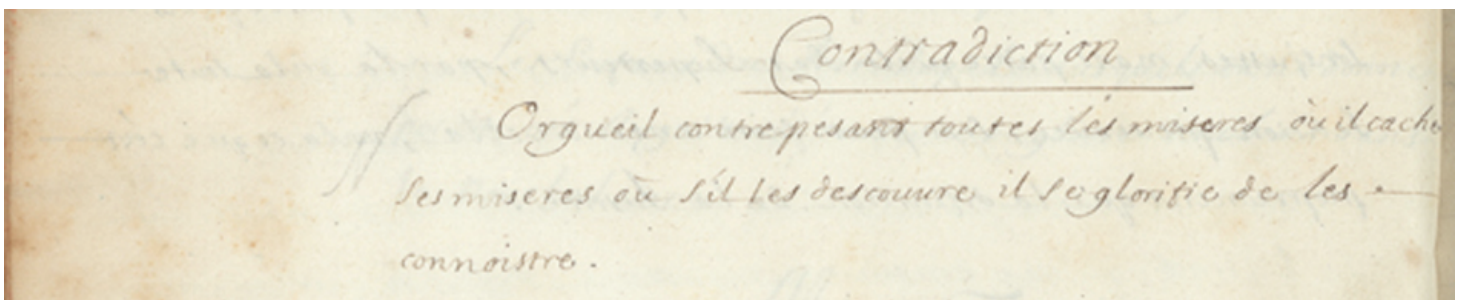 Contradiction
Orgueil contrepesant toutes les miseres où il cache
ses miseres où s'il les descouvre il se glorifie de les
connoistre.